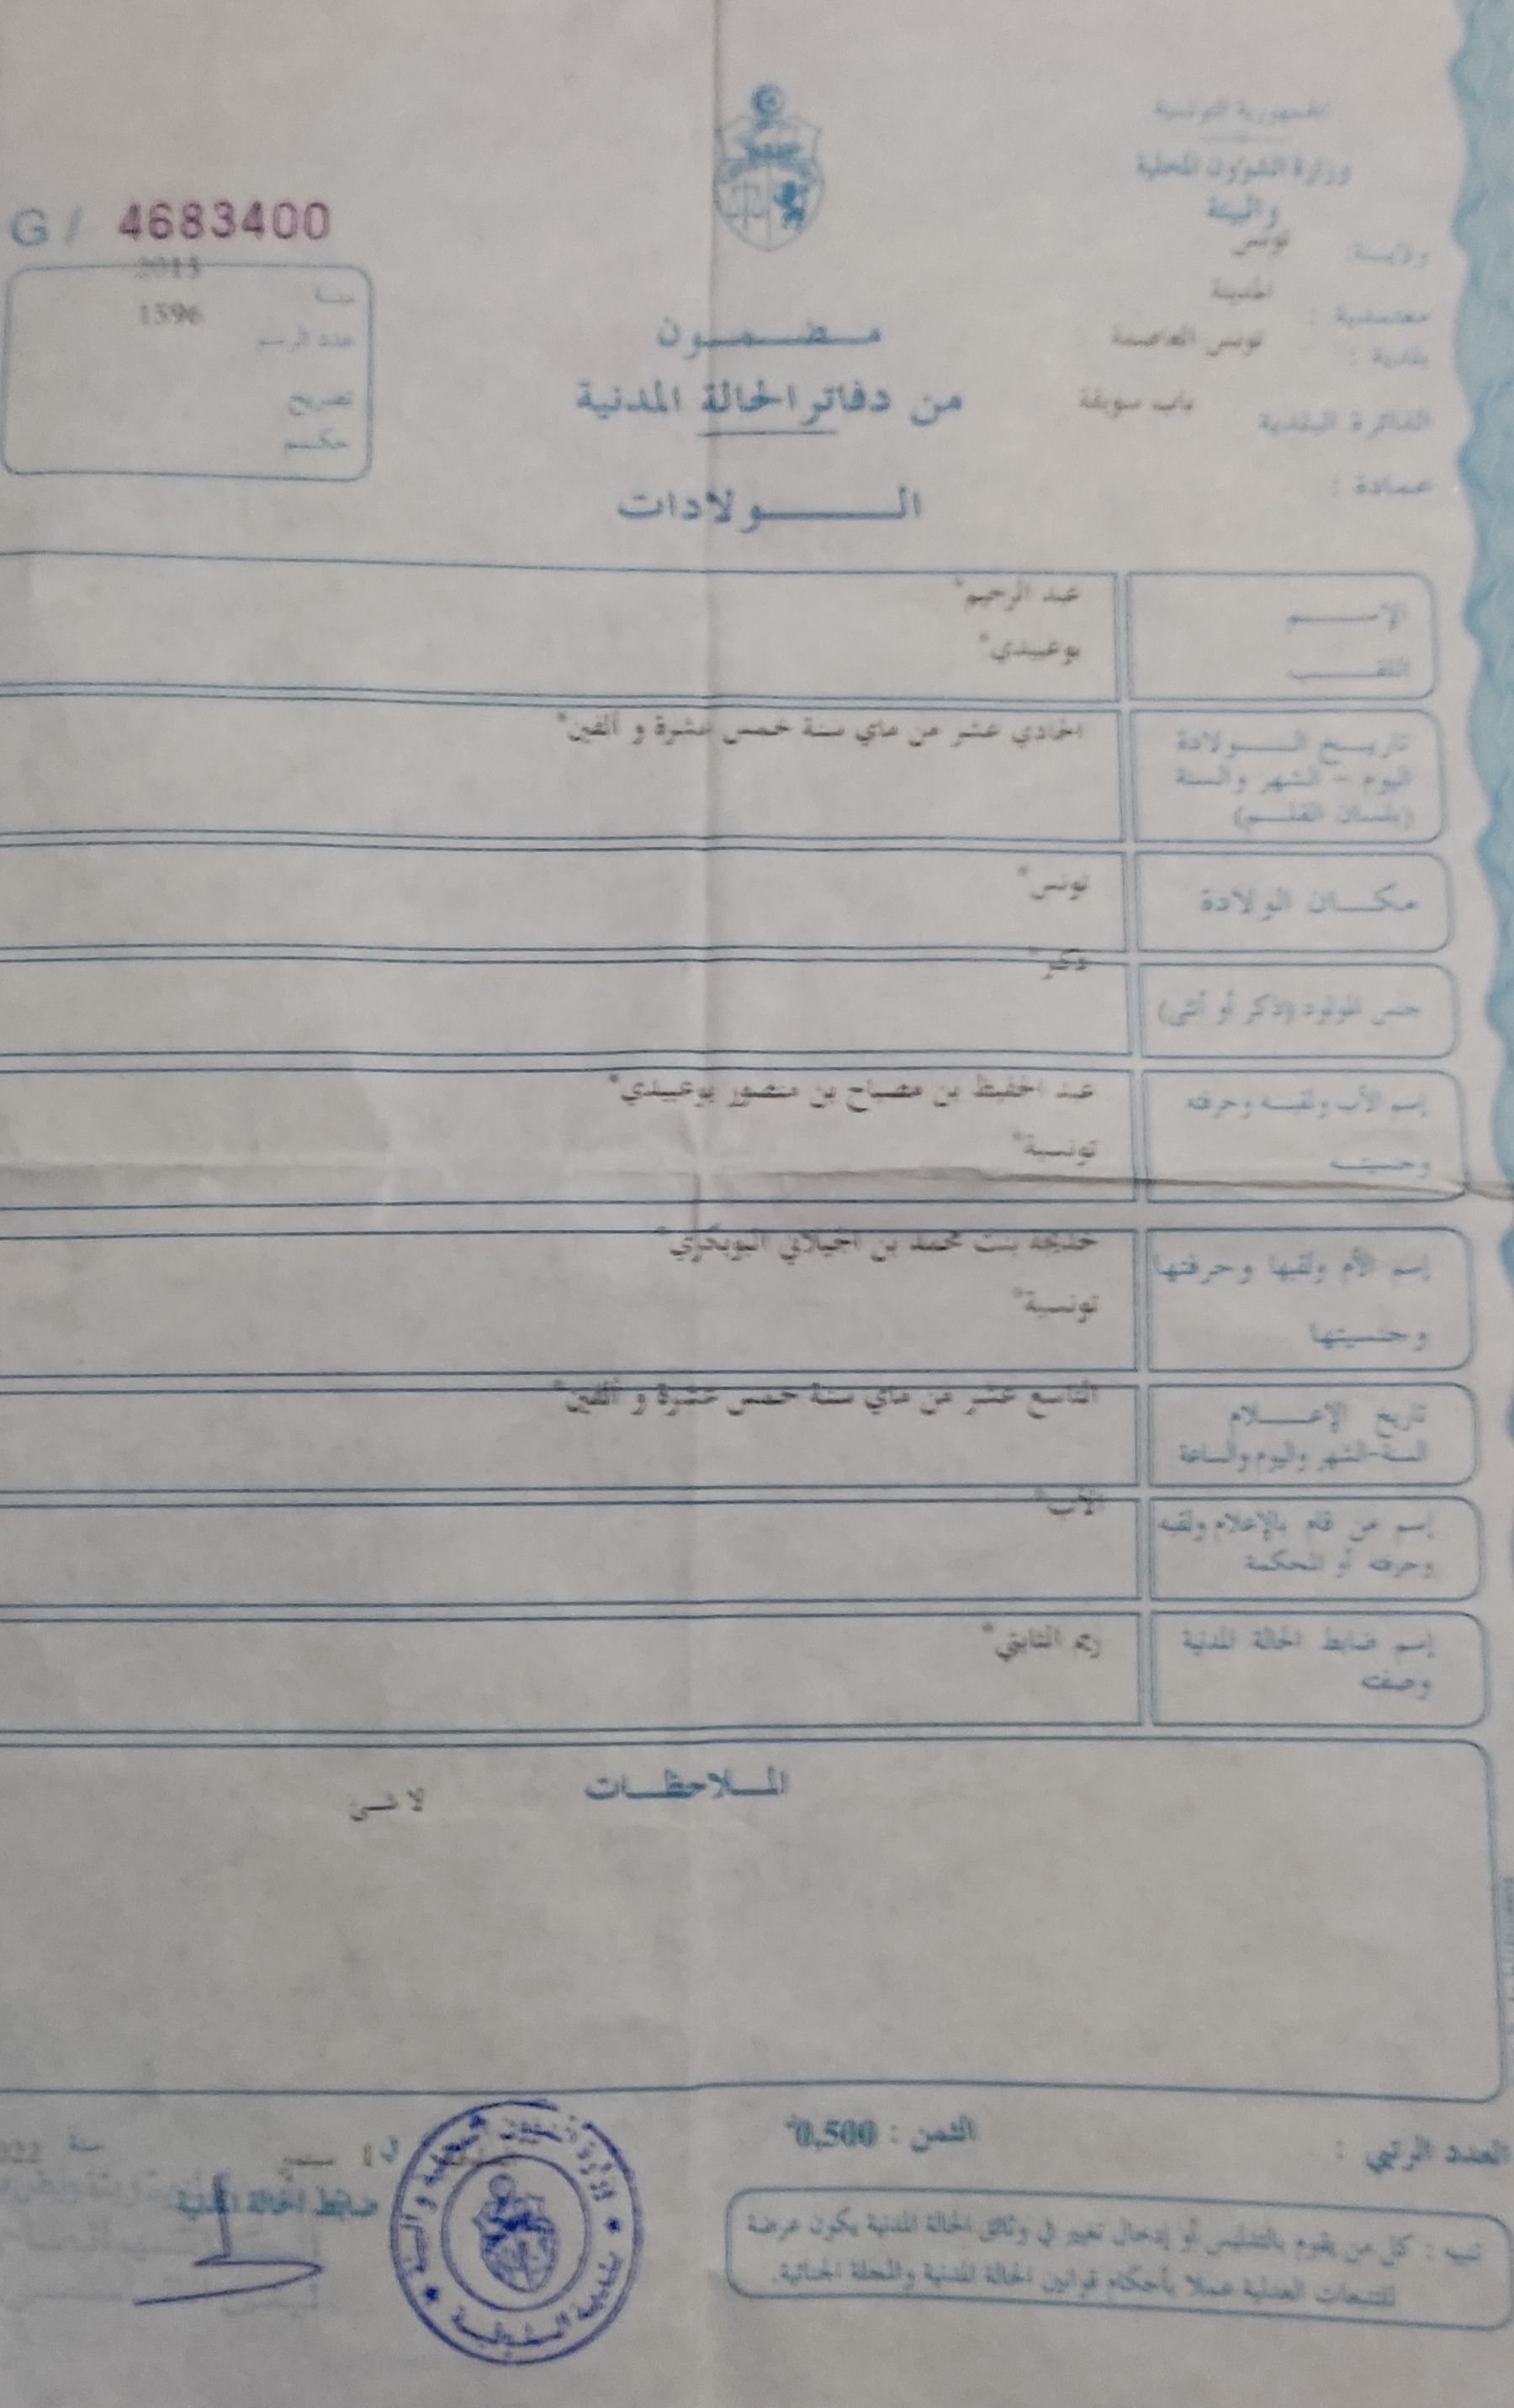 الجمهورية التونسية
وزارة الشؤون المحلية
والبيئة
ولايـــة: تونس
معتمدية : المدينة
بلدية : تونس العاصمة
الدائرة البلدية باب سويقة
عمادة :
G / 4683400
سنة 2015
عدد الرسم 1596
تصريح
حكم
مـضـمـون
من دفاتر الحالة المدنية
الـــولادات
الإســـم عبد الرحيم*
اللقـــب بوعبيدي*
تاريـخ الـــولادة الحادي عشر من ماي سنة خمس عشرة و ألفين*
اليوم - الشهر والسنة
(بلسان القلـــم)
مكـــان الولادة تونس*
جنس المولود (ذكر أو أنثى) ذكر*
إسم الأب ولقبـه وحرفته عبد الحفيظ بن مصباح بن منصور بوعبيدي*
وجنسيتـه تونسية*
إسم الأم ولقبها وحرفتها خديجة بنت محمد بن الجيلاني البوبكري*
وجنسيتها تونسية*
تاريخ الإعـــلام التاسع عشر من ماي سنة خمس عشرة و ألفين*
السنة-الشهر واليوم والساعة
إسم من قام بالإعلام ولقبه الأب*
وحرفته أو المحكمة
إسم ضابط الحالة المدنية ريم الثابتي*
وصفته
المـلاحظـــات
لا شـىء
العدد الرتبي :
الثمن : 0,500
في 1
سنة 022
ضابط الحالة المدنية
تنبيه : كل من يقوم بالتدليس أو إدخال تغيير في وثائق الحالة المدنية يكون عرضة
للتتبعات العدلية عملا بأحكام قوانين الحالة المدنية والمجلة الجنائية.